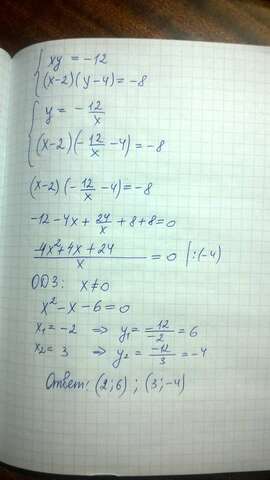 { xy = -12
(x-2)(y-4) = -8
{ y = - 12/x
(x-2)(- 12/x - 4) = -8
(x-2)(- 12/x - 4) = -8
-12 - 4x + 24/x + 8 + 8 = 0
-4x² + 4x + 24 / x = 0 |:(-4)
ОДЗ: x ≠ 0
x² - x - 6 = 0
x₁ = -2 ⇒ y₁ = -12/-2 = 6
x₂ = 3 ⇒ y₂ = -12/3 = -4
Ответ: (2; 6) ; (3; -4)